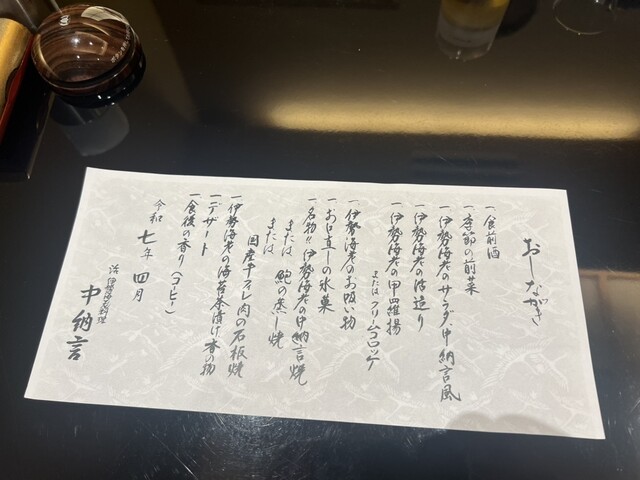 おしながき
一 食前酒
一 季節の前菜
一 伊勢海老のサラダ中納言風
一 伊勢海老の活造り
一 伊勢海老の甲羅揚
または クリームコロッケ
一 伊勢海老のお吸い物
一 お口直しの氷菓
一 名物!!伊勢海老の中納言焼
または 鮑の蒸し焼
または 国産牛フィレ肉の石板焼
一 伊勢海老の海苔茶漬け 香の物
一 デザート
一 食後の香り(コーヒー)
令和 七年 四月
活伊勢海老料理
中納言